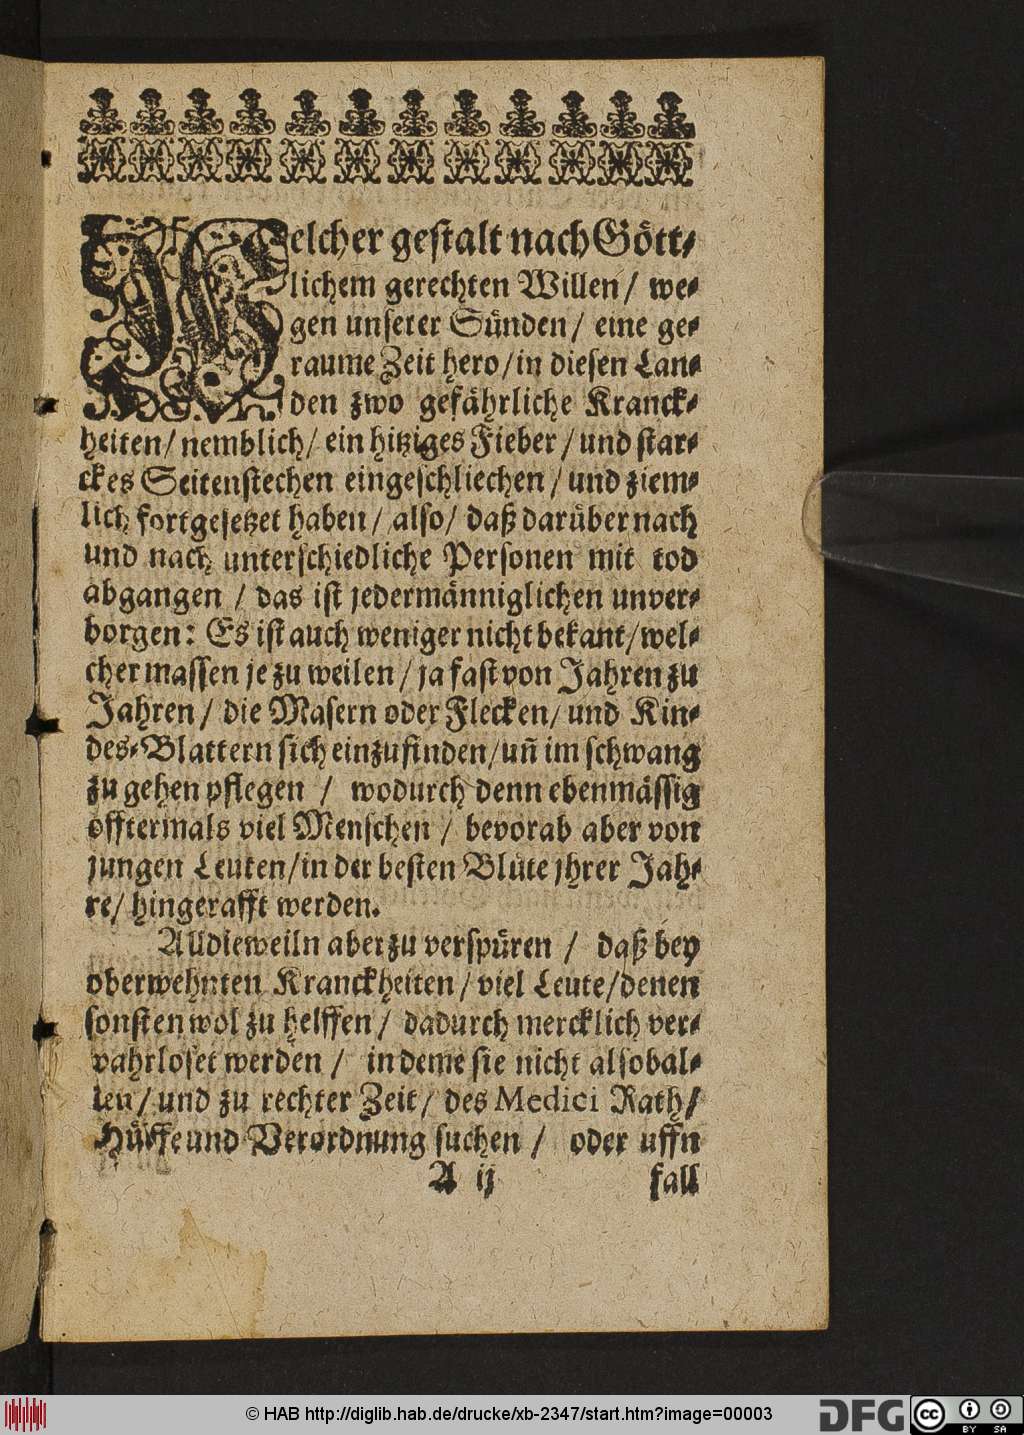 Welcher gestalt nach Gött-
lichem gerechten Willen / we-
gen unserer Sünden / eine ge-
raume Zeit hero / in diesen Lan-
den zwo gefährliche Kranck-
heiten / nemblich / ein hitziges Fieber / und star-
ckes Seitenstechen eingeschliechen / und ziem-
lich fortgesetzet haben / also / daß darüber nach
und nach unterschiedliche Personen mit tod
abgangen / das ist jedermänniglichen unver-
borgen: Es ist auch weniger nicht bekant / wel-
cher massen je zu weilen / ja fast von Jahren zu
Jahren / die Masern oder Flecken / und Kin-
des-Blattern sich einzufinden / uñ im schwang
zu gehen pflegen / wodurch denn ebenmässig
offtermals viel Menschen / bevorab aber von
jungen Leuten / in der besten Blüte jhrer Jah-
re / hingerafft werden.
Alldieweiln aber zu verspüren / daß bey
oberwehnten Kranckheiten / viel Leute / denen
sonsten wol zu helffen / dadurch mercklich ver-
wahrloset werden / in deme sie nicht alsobal-
len / und zu rechter Zeit / des Medici Rath /
Hülffe und Verordnung suchen / oder uffn
A ij fall
© HAB http://diglib.hab.de/drucke/xb-2347/start.htm?image=00003 DFG cc BY SA